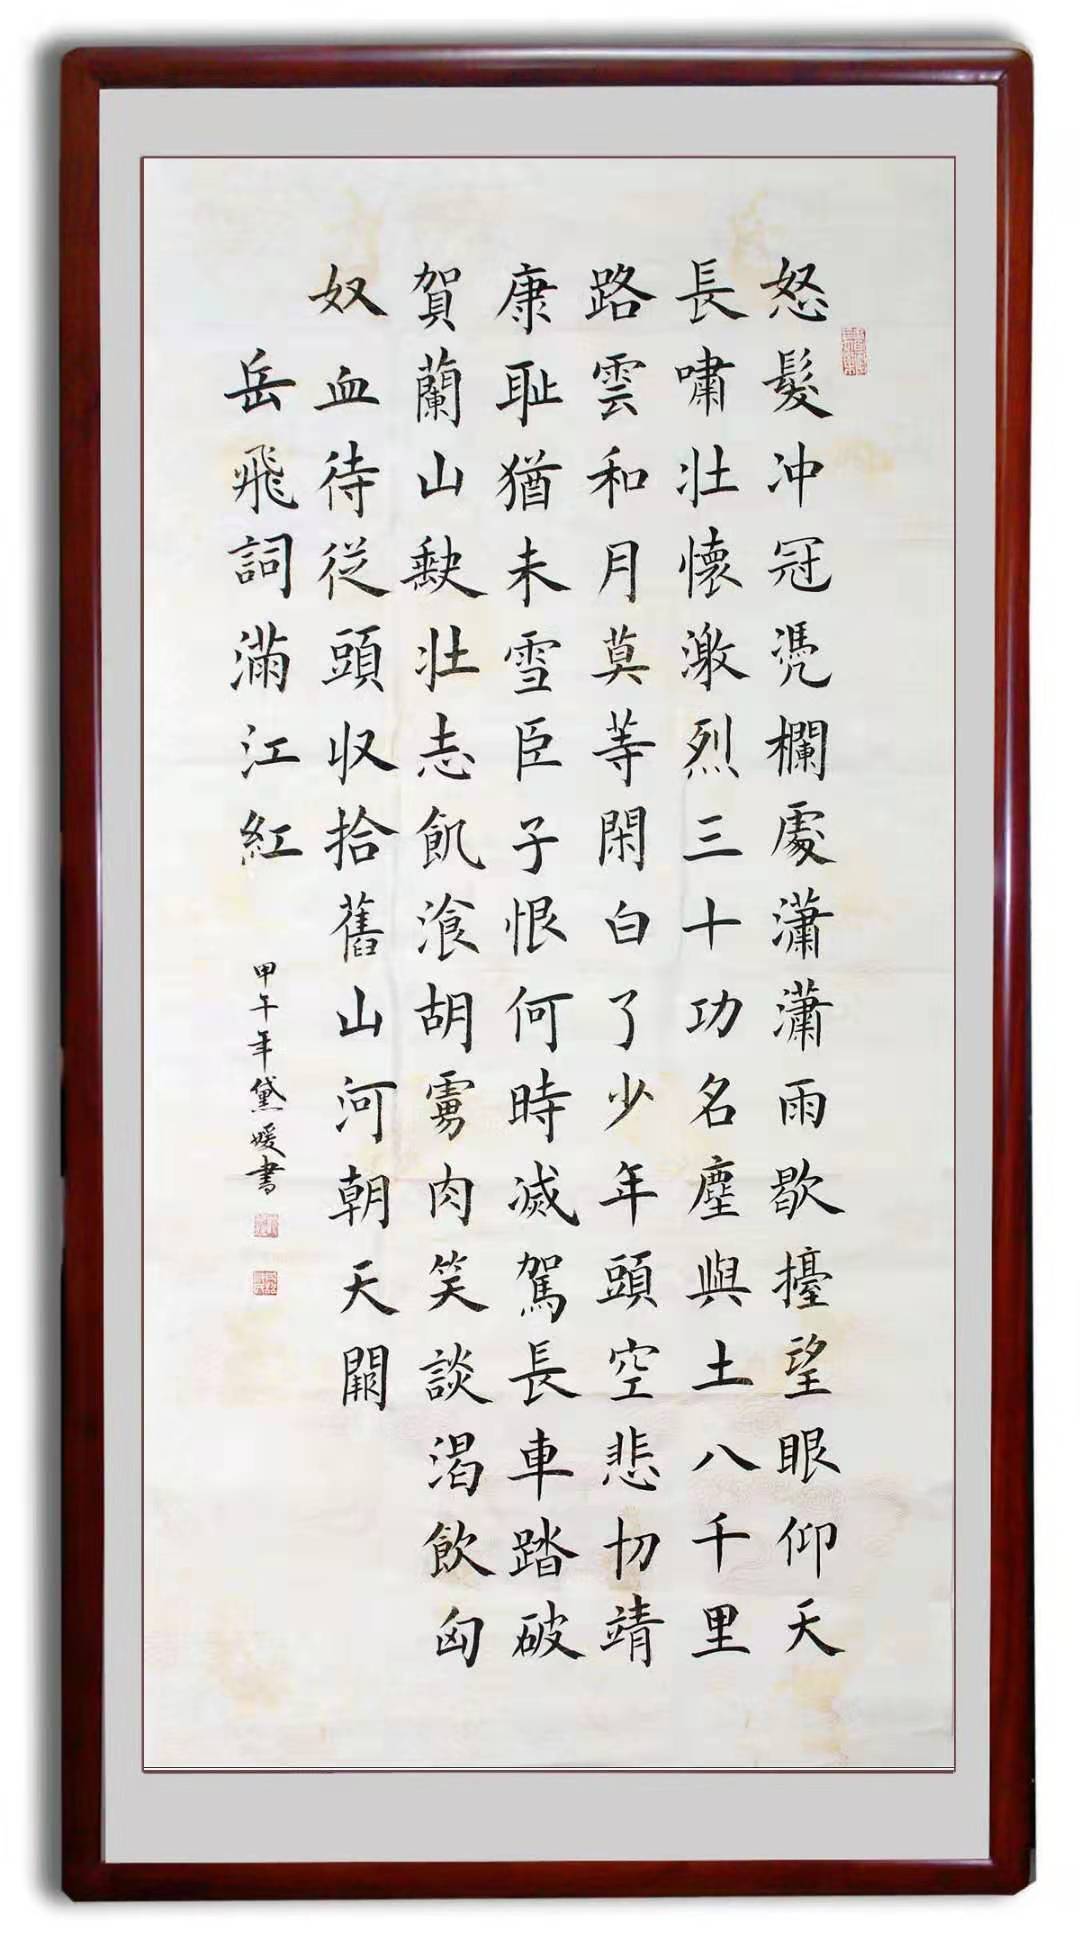 怒髮冲冠凴欄處瀟瀟雨歇擡望眼仰天
長嘯壯懷激烈三十功名塵與土八千里
路雲和月莫等閑白了少年頭空悲切靖
康耻猶未雪臣子恨何時滅駕長車踏破
賀蘭山缺壯志飢湌胡虜肉笑談渴飲匈
奴血待従頭収拾舊山河朝天闕
岳飛詞滿江紅
甲午年黛媛書